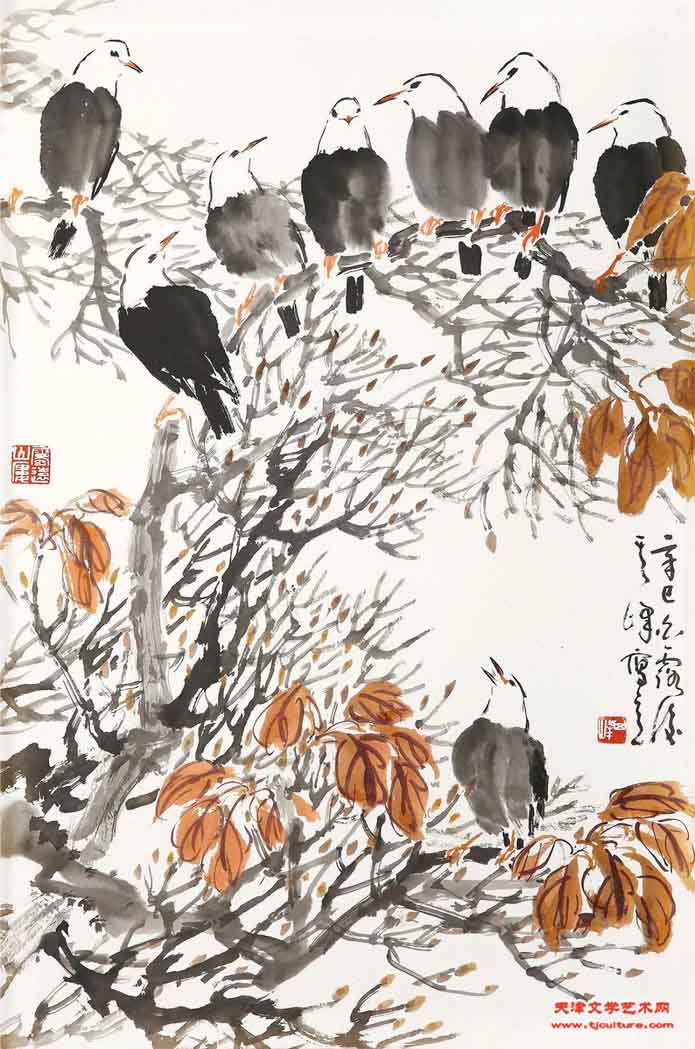 辛巳白露後
其峰寫
天津文学艺术网
www.tjculture.com